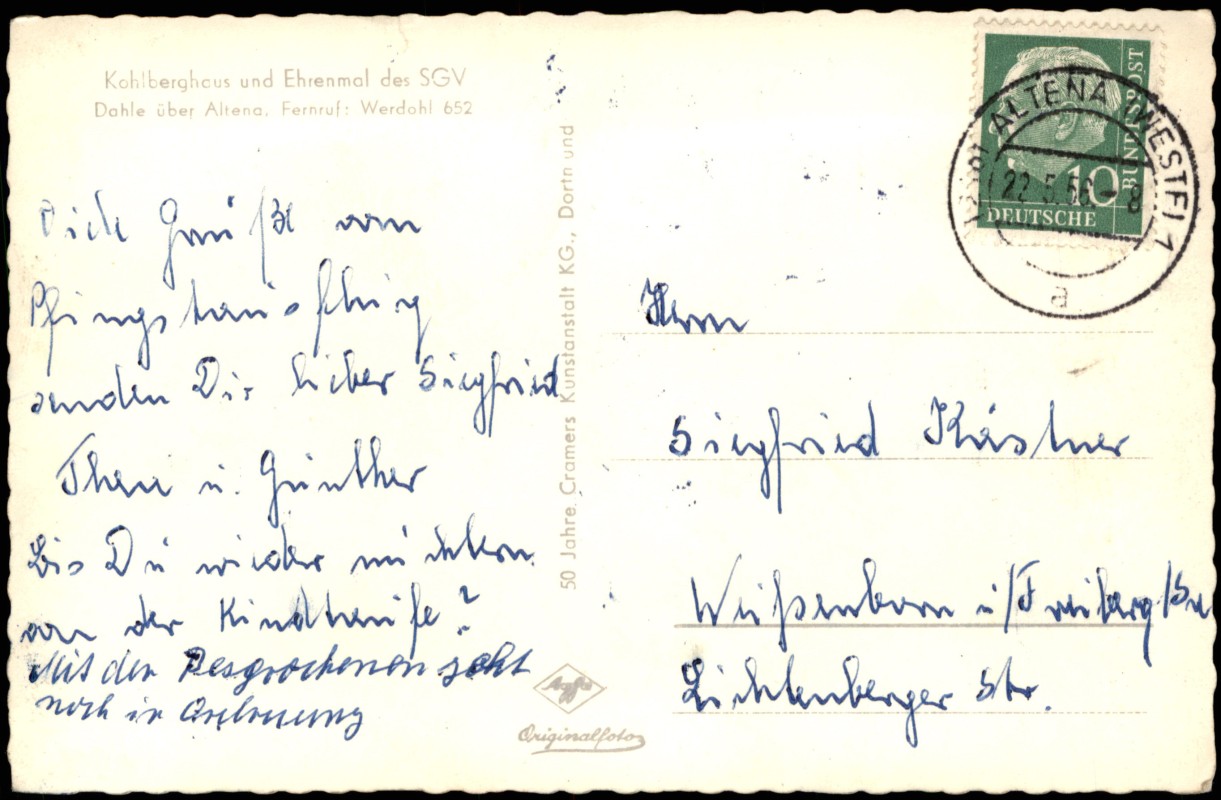 Kohlberghaus und Ehrenmal des SGV
Dahle über Altena, Fernruf: Werdohl 652
Grüße vom
Pfingstausflug
senden Dir lieber Siegfried
Thea u. Günther
Bis Du wieder nüchtern
von der Kindtaufe?
Mit der Besprochenen geht
noch in Ordnung
50 Jahre Cramers Kunstanstalt KG., Dortmund
Agfa
Originalfoto
BUNDESPOST
10
DEUTSCHE
ALTENA (WESTF) 1
22.5.56.-8
a
Herrn
Siegfried Kästner
Weißenborn i/Freiberg/Sa
Lichtenberger Str.